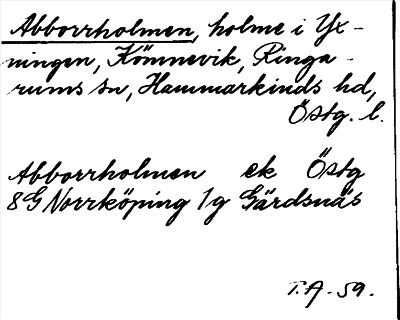 Abborrholmen, holme i Yx-
ningen, Kömnevik, Ringa-
rums sn, Hammarkinds hd,
Östg. l.
Abborrholmen ek Östg
8G Norrköping 1g Gärdsnäs
T.A. 59.